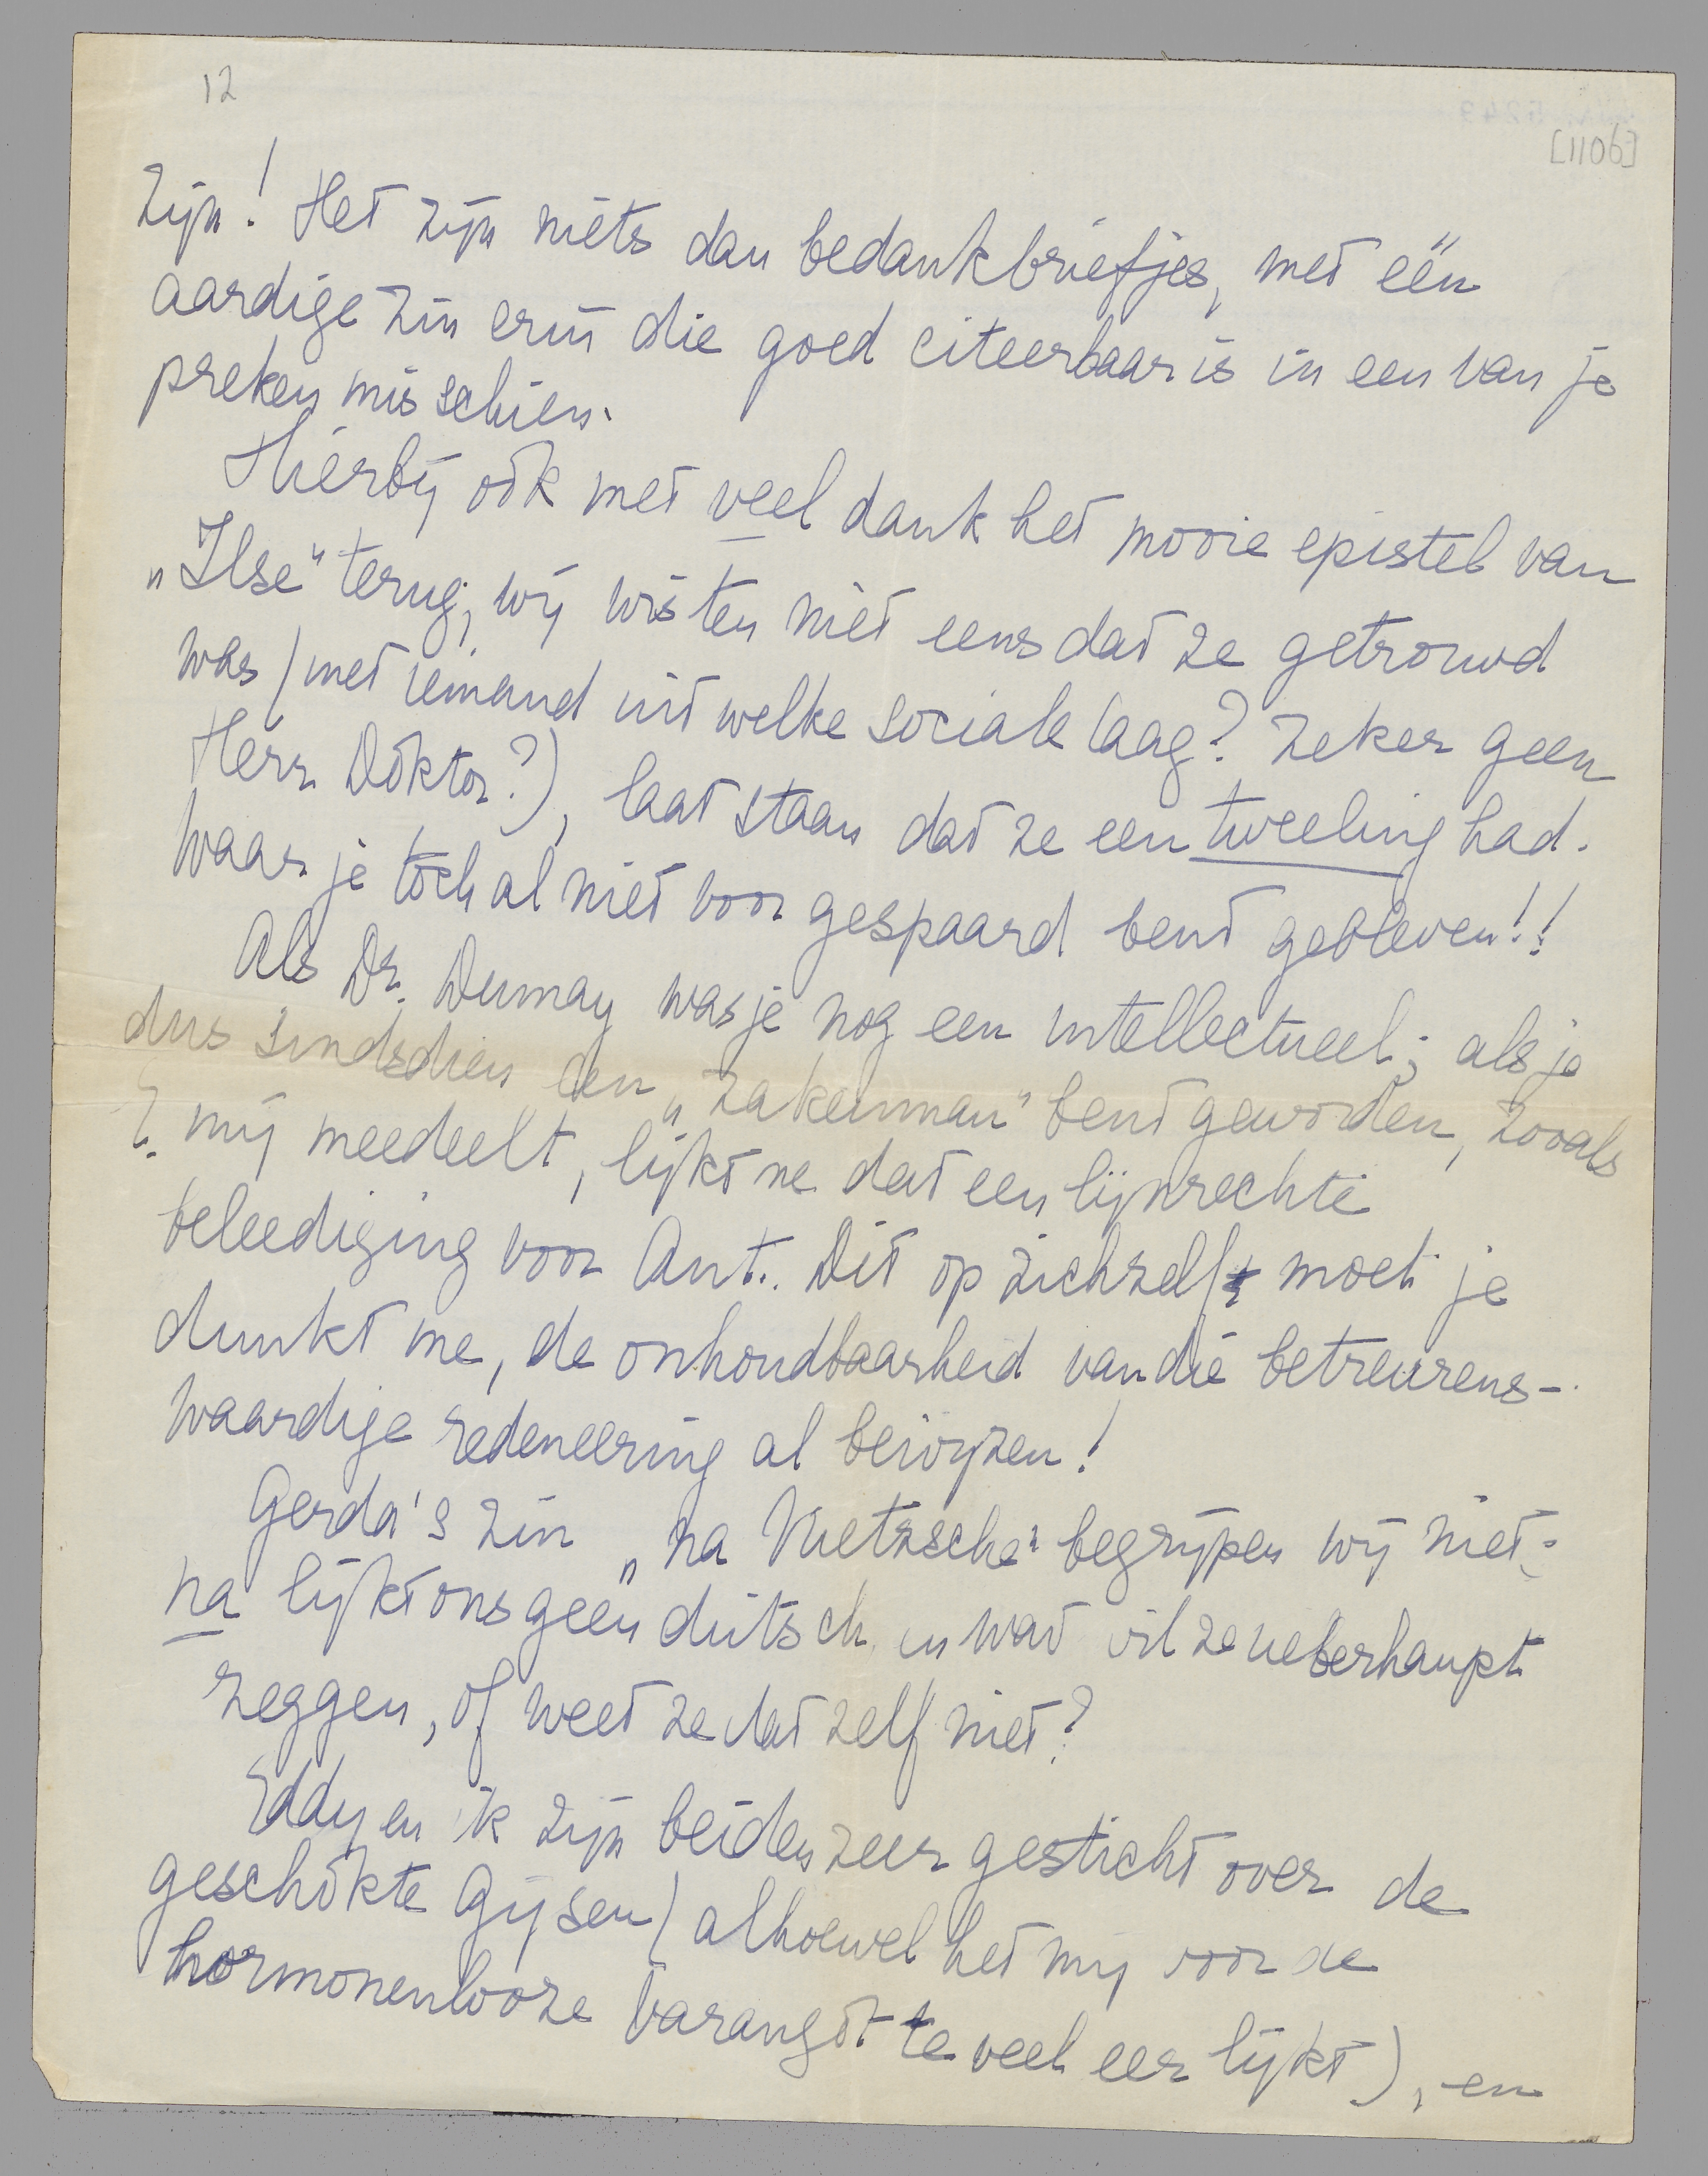 12
[1106]
zijn! Het zijn niets dan bedankbriefjes, met één
aardige zin erin die goed citeerbaar is in een van je
preken misschien.
Hierbij ook met veel dank het mooie epistel van
„Ilse" terug; wij wisten niet eens dat ze getrouwd
was (met iemand uit welke sociale laag? Zeker geen
Herr Doktor?), laat staan dat ze een tweeling had.
Waar je toch al niet voor gespaard bent gebleven!!
Als Dr. Dumay was je nog een intellectueel; als je
dus sindsdien een „zakenman" bent geworden, zooals
E. mij meedeelt, lijkt me dat een lijnrechte
beleediging voor Ant. Dit op zichzelf moet je
dunkt me, de onhoudbaarheid van die betreurens-
waardige redeneering al bewijzen!
Gerda's zin „na Nietzsche" begrijpen wij niet;
na lijkt ons geen duitsch en wat wil ze ueberhaupt
zeggen, of weet ze dat zelf niet?
Eddy en ik zijn beiden zeer gesticht over de
geschokte Gijsen (alhoewel het mij voor de
hormonenlooze Varangot te veel eer lijkt), en